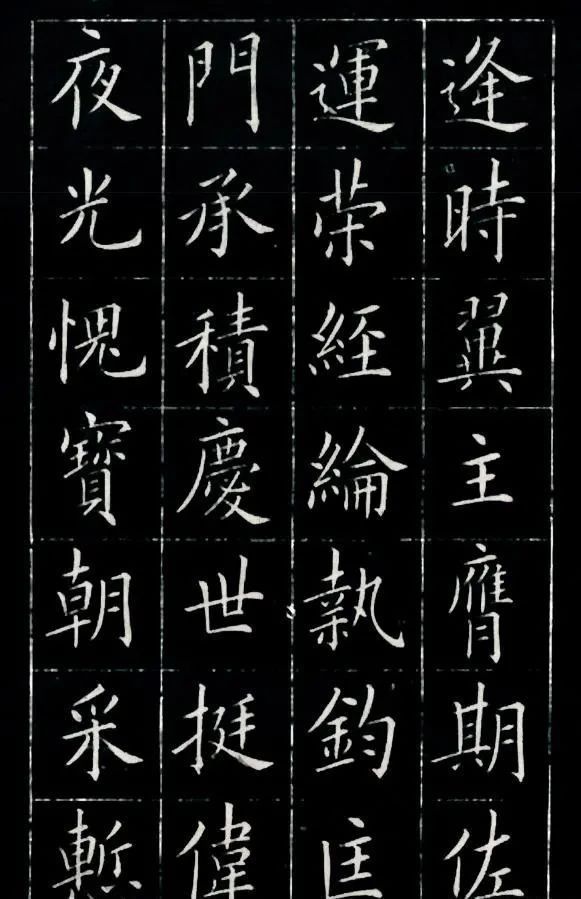 逢時翼主膺期佐
運榮經綸執鈞匡
門承積慶世挺偉
夜光愧寶朝采慙